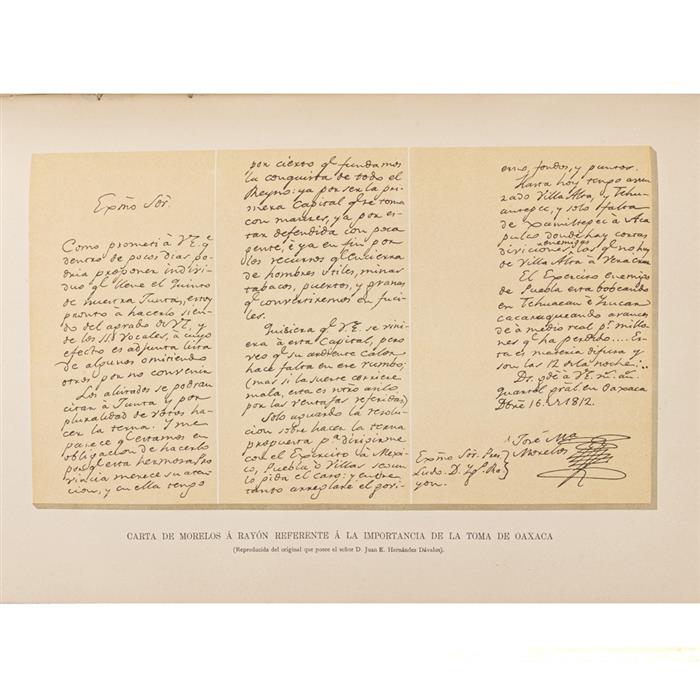 Exmo Sor.
Como prometi á VE. q e
dentro de pocos dias po
dria proponer indivi
duo q e llene el Quinto
de nuestra Junta, estoy
pronto á hacerlo sien
do del agrado de VE, y
de los SS. Vocales, á cuyo
efecto es adjunta lista
de algunos omitiendo
otros por no convenir
Los alistados se podran
citar á Junta y por
pluralidad de votos ha
cer la terna. Y me
parece q e estamos en
obligacion de hacerlo
porq e esta hermosa Pro
vincia merece su aten
cion, y en ella tengo
por cierto q e fundamos
la conquista de todo el
Reyno: ya por ser la pri
mera Capital q e se toma
con manres, ya por es
tar defendida con poca
gente, é ya en fin por
los recursos q e encierra
de hombres utiles, minas
tabacos, puertos, y granas
q e convertiremos en fuci
les.
Quisiera q e VE. se vini
era á esta Capital, pero
veo q e su ardiente Calor
hace falta en ese rumbo;
(mas si la suerte corriere
mala, esta es ntro asilo
por las ventajas referidas)
Solo aguardo la resolu
cion sobre hacer la terna
propuesta p a dirigirme
con el Exército á Mexi
co, Puebla ó Villas segun
lo pida el caso: y entre
tanto arreglaré el govi-
erno, fondos, y puntos.
Hasta hoy tengo avan
zado Villa Alta, y Tehu
antepec, y solo falta
de Xamiltepec á Aca
pulco donde hay cortas
diviciones enemigas, las q e no hay
de Villa Alta á Veracruz
El Exercito enemigo
de Puebla esta bobeando
en Tehuacan é Izucar
cacaraqueando avances
de á medio real p r millo
nes q e ha perdido.... Es
ta es materia difusa y
son las 12 de la noche:
Ds. gde á VE. m. a.
quartel gral en Oaxaca
Dbre 16. 1812.
José Ma.
Morelos
Exmo Sor. Pres.
Lic do. D. Ig o. Ra
yon.
CARTA DE MORELOS Á RAYÓN REFERENTE Á LA IMPORTANCIA DE LA TOMA DE OAXACA
(Reproducida del original que posee el señor D. Juan E. Hernández Dávalos).